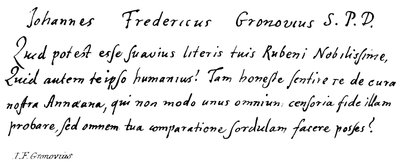 Johannes Fredericus Gronovius S. P. D.
Quid potest esse suavius literis tuis Rubeni Nobilissime,
Quid autem te ipso humanius? Tam honeste sentire te de cura
nostra Annæana, qui non modo unus omnium censoria fide illam
probare, sed omnem tua comparatione sordulam facere posses?
I. F. Gronovius